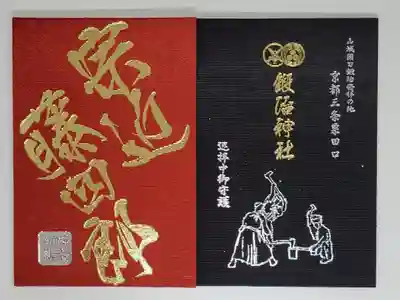 藤四郎
山城国刀鍛冶発祥の地
京都三条粟田口
鍛冶神社
巡拝中御守護